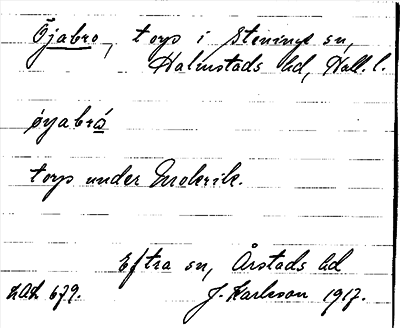 Öjabro, torp i Steninge sn,
Halmstads hd, Hall. l.
øyabrá
torp under
Eftra sn, Årstads hd
LAL 679. J. Karlsson 1917.